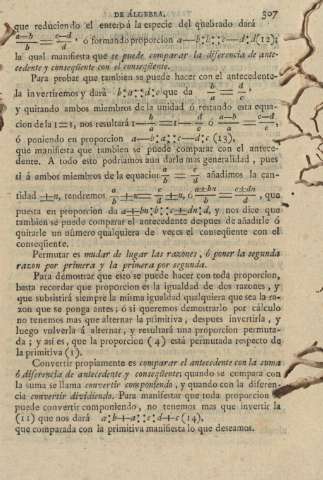 DE ÁLGEBRA. 307
que reduciendo el entero á la especie del quebrado dará
a—b/b = c—d/d, ó formando proporcion a—b:b::c—d:d(12);
la qual manifiesta que se puede comparar la diferencia de ante-
cedente y conseqüente con el conseqüente.
Para probar que tambien se puede hacer con el antecedente
la invertiremos y dará b:a::d:c que da b/a = d/c,
y quitando ambos miembros de la unidad ó restando esta equa-
cion de la 1=1, nos resultará 1— b/a =1— d/c ó a—b/a = c—d/c,
ó poniendo en proporcion a—b:a::c—d:c (13),
que manifiesta que tambien se puede comparar con el antece-
dente. A todo esto podriamos aun darla mas generalidad, pues
si á ambos miembros de la equacion a/b = c/d añadimos la can-
tidad ±n, tendremos a/b ±n= c/d ±n, ó a±bn/b = c±dn/d, que
puesta en proporcion da a±bn:b::c±dn:d, y nos dice que
tambien se puede comparar el antecedente despues de añadirle ó
quitarle un número qualquiera de veces el conseqüente con el
conseqüente.
Permutar es mudar de lugar las razones, ó poner la segunda
razon por primera y la primera por segunda.
Para demostrar que esto se puede hacer con toda proporcion,
basta recordar que proporcion es la igualdad de dos razones, y
que subsistirá siempre la misma igualdad qualquiera que sea la ra-
zon que se ponga antes; ó si queremos demostrarlo por cálculo
no tenemos mas que alternar la primitiva, despues invertirla, y
luego volverla á alternar, y resultará una proporcion permuta-
da; y asi es, que la proporcion (4) está permutada respecto de
la primitiva (1).
Convertir propiamente es comparar el antecedente con la suma
ó diferencia de antecedente y conseqüente; quando se compara con
la suma se llama convertir componiendo, y quando con la diferen-
cia convertir dividiendo. Para manifestar que toda proporcion
puede convertir componiendo, no tenemos mas que invertir la
(11) que nos dará a:b+a::c:d+c (14),
que comparada con la primitiva manifiesta lo que deseamos.